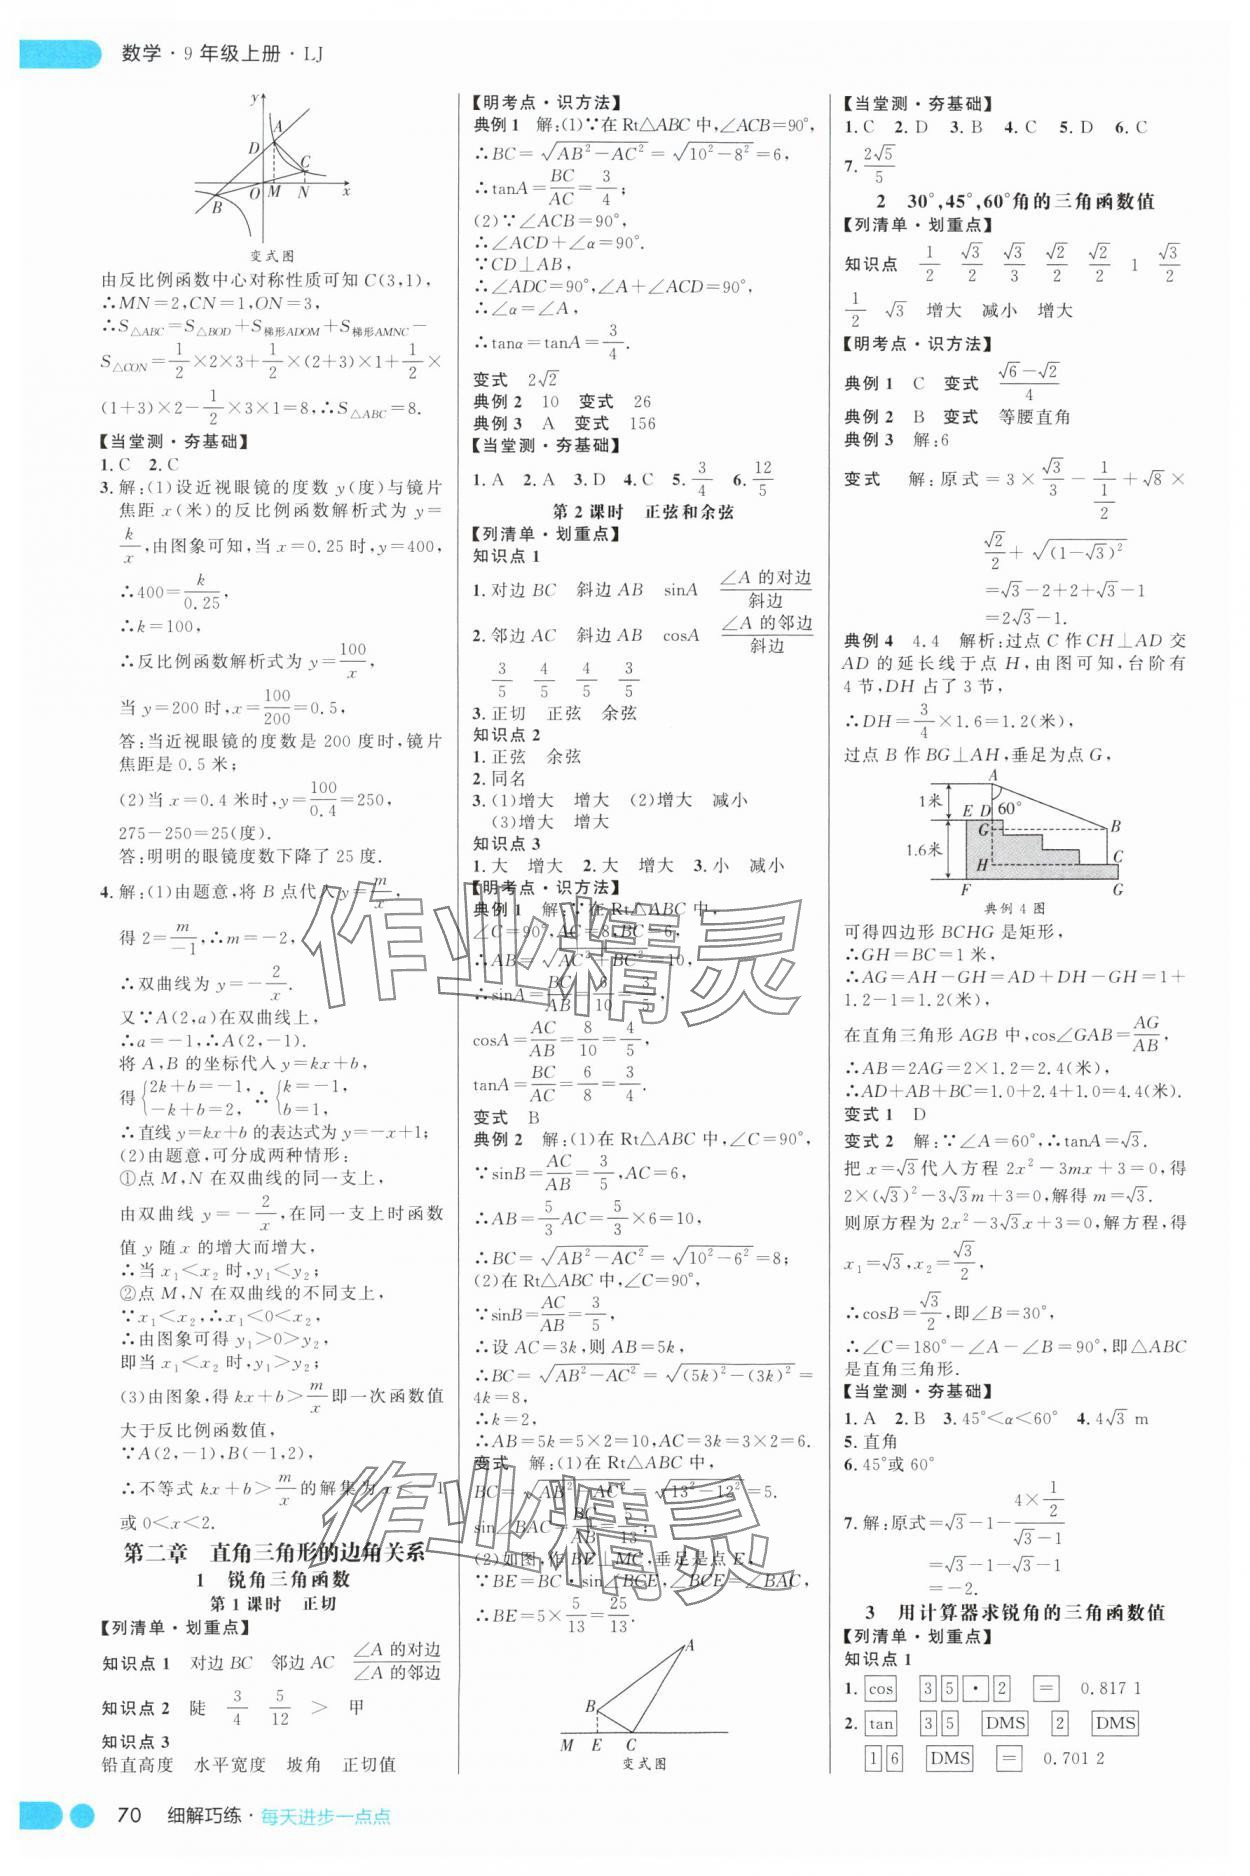 数学·9年级上册·LJ
y
A
D
C
O M N x
B
变式图
由反比例函数中心对称性质可知C(3,1),
∴MN=2,CN=1,ON=3,
∴S△ABC=S△BOD+S梯形ADOM+S梯形AMNC-
S△CON=1/2×2×3+1/2×(2+3)×1+1/2×
(1+3)×2-1/2×3×1=8,∴S△ABC=8.
【当堂测·夯基础】
1.C 2.C
3.解:(1)设近视眼镜的度数y(度)与镜片
焦距x(米)的反比例函数解析式为y=
k/x,由图象可知,当x=0.25时,y=400,
∴400=k/0.25,
∴k=100,
∴反比例函数解析式为y=100/x,
当y=200时,x=100/200=0.5,
答:当近视眼镜的度数是200度时,镜片
焦距是0.5米;
(2)当x=0.4米时,y=100/0.4=250,
275-250=25(度).
答:明明的眼镜度数下降了25度.
4.解:(1)由题意,将B点代入y=m/x,
得2=m/-1,∴m=-2,
∴双曲线为y=-2/x.
又∵A(2,a)在双曲线上,
∴a=-1,∴A(2,-1).
将A,B的坐标代入y=kx+b,
得{2k+b=-1,-k+b=2, ∴{k=-1,b=1,
∴直线y=kx+b的表达式为y=-x+1;
(2)由题意,可分成两种情形:
①点M,N在双曲线的同一支上,
由双曲线y=-2/x,在同一支上时函数
值y随x的增大而增大,
∴当x₁<x₂时,y₁<y₂;
②点M,N在双曲线的不同支上,
∵x₁<x₂,∴x₁<0<x₂,
∴由图象可得y₁>0>y₂,
即当x₁<x₂时,y₁>y₂;
(3)由图象,得kx+b>m/x即一次函数值
大于反比例函数值,
∵A(2,-1),B(-1,2),
∴不等式kx+b>m/x的解集为x<-1
或0<x<2.
第二章 直角三角形的边角关系
1 锐角三角函数
第1课时 正切
【列清单·划重点】
知识点1 对边BC 邻边AC ∠A的对边/∠A的邻边
知识点2 陡 3/4 5/12 > 甲
知识点3
铅直高度 水平宽度 坡角 正切值
【明考点·识方法】
典例1 解:(1)∵在Rt△ABC中,∠ACB=90°,
∴BC=√(AB²-AC²)=√(10²-8²)=6,
∴tanA=BC/AC=3/4;
(2)∵∠ACB=90°,
∴∠ACD+∠α=90°.
∵CD⊥AB,
∴∠ADC=90°,∠A+∠ACD=90°,
∴∠α=∠A,
∴tanα=tanA=3/4.
变式 2√2
典例2 10 变式 26
典例3 A 变式 156
【当堂测·夯基础】
1.A 2.A 3.D 4.C 5.3/4 6.12/5
第2课时 正弦和余弦
【列清单·划重点】
知识点1
1.对边BC 斜边AB sinA ∠A的对边/斜边
2.邻边AC 斜边AB cosA ∠A的邻边/斜边
3/5 4/5 4/5 3/5
3.正切 正弦 余弦
知识点2
1.正弦 余弦
2.同名
3.(1)增大 增大 (2)增大 减小
(3)增大 增大
知识点3
1.大 增大 2.大 增大 3.小 减小
【明考点·识方法】
典例1 解:∵在Rt△ABC中,
∠C=90°,AC=8,BC=6,
∴AB=√(AC²+BC²)=10,
∴sinA=BC/AB=6/10=3/5,
cosA=AC/AB=8/10=4/5,
tanA=BC/AC=6/8=3/4.
变式 B
典例2 解:(1)在Rt△ABC中,∠C=90°,
∵sinB=AC/AB=3/5,AC=6,
∴AB=5/3AC=5/3×6=10,
∴BC=√(AB²-AC²)=√(10²-6²)=8;
(2)在Rt△ABC中,∠C=90°,
∵sinB=AC/AB=3/5,
∴设AC=3k,则AB=5k,
∴BC=√(AB²-AC²)=√((5k)²-(3k)²)=
4k=8,
∴k=2,
∴AB=5k=5×2=10,AC=3k=3×2=6.
变式 解:(1)在Rt△ABC中,
BC=√(AB²-AC²)=√(13²-12²)=5.
sin∠BAC=BC/AB=5/13;
(2)如图,作BE⊥MC,垂足是点E,
∵BE=BC·sin∠BCE,∠BCE=∠BAC,
∴BE=5×5/13=25/13.
A
B
M E C
变式图
【当堂测·夯基础】
1.C 2.D 3.B 4.C 5.D 6.C
7.2√5/5
2 30°,45°,60°角的三角函数值
【列清单·划重点】
知识点 1/2 √3/2 √3/3 √2/2 √2/2 1 √3/2
1/2 √3 增大 减小 增大
【明考点·识方法】
典例1 C 变式 (√6-√2)/4
典例2 B 变式 等腰直角
典例3 解:6
变式 解:原式=3×√3/3-1/(1/2)+√8×
√2/2+√((1-√3)²)
=√3-2+2+√3-1
=2√3-1.
典例4 4.4 解析:过点C作CH⊥AD交
AD的延长线于点H,由图可知,台阶有
4节,DH占了3节,
∴DH=3/4×1.6=1.2(米),
过点B作BG⊥AH,垂足为点G,
A
1米 E D 60°
G B
1.6米
H C
F G
典例4图
可得四边形BCHG是矩形,
∴GH=BC=1米,
∴AG=AH-GH=AD+DH-GH=1+
1.2-1=1.2(米),
在直角三角形AGB中,cos∠GAB=AG/AB,
∴AB=2AG=2×1.2=2.4(米),
∴AD+AB+BC=1.0+2.4+1.0=4.4(米).
变式1 D
变式2 解:∵∠A=60°,∴tanA=√3.
把x=√3代入方程2x²-3mx+3=0,得
2×(√3)²-3√3m+3=0,解得m=√3.
则原方程为2x²-3√3x+3=0,解方程,得
x₁=√3,x₂=√3/2,
∴cosB=√3/2,即∠B=30°,
∴∠C=180°-∠A-∠B=90°,即△ABC
是直角三角形.
【当堂测·夯基础】
1.A 2.B 3.45°<α<60° 4.4√3 m
5.直角
6.45°或60°
7.解:原式=√3-1-(4×1/2)/(√3-1)
=√3-1-√3-1
=-2.
3 用计算器求锐角的三角函数值
【列清单·划重点】
知识点1
1.cos 3 5 · 2 = 0.817 1
2.tan 3 5 DMS 2 DMS
1 6 DMS = 0.701 2
作业精灵
作业精灵
70 细解巧练·每天进步一点点